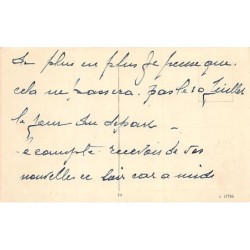 de plus en plus je pense que
cela ne passera pas le 10 Juillet
le jour du départ —
e compte recevoir de vos
nouvelles ce soir car a midi